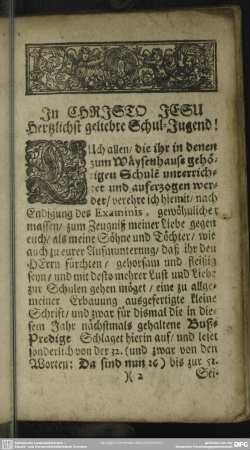 In CHRISTO JESU
Hertzlichst geliebte Schul-Jugend!
Uch allen/ die ihr in denen
zum Wäysenhause gehö-
rigen Schulē unterrich-
tet und auferzogen wer-
det/ verehre ich hiemit/ nach
Endigung des Examinis, gewöhnlicher
massen/ zum Zeugniß meiner Liebe gegen
euch/ als meine Söhne und Töchter/ wie
auch zu eurer Aufmunterung/ daß ihr den
HErrn fürchten/ gehorsam und fleißig
seyn/ und mit desto mehrer Lust und Liebe
zur Schulen gehen möget/ eine zu allge-
meiner Erbauung ausgefertigte kleine
Schrift/ und zwar für dismal die in die-
sem Jahr nächstmals gehaltene Buß-
Predigt. Schlaget hierin auf/ und leset
sonderlich von der 32. (und zwar von den
Worten: Da sind nun 26) bis zur 52.
)( 2 Sei-